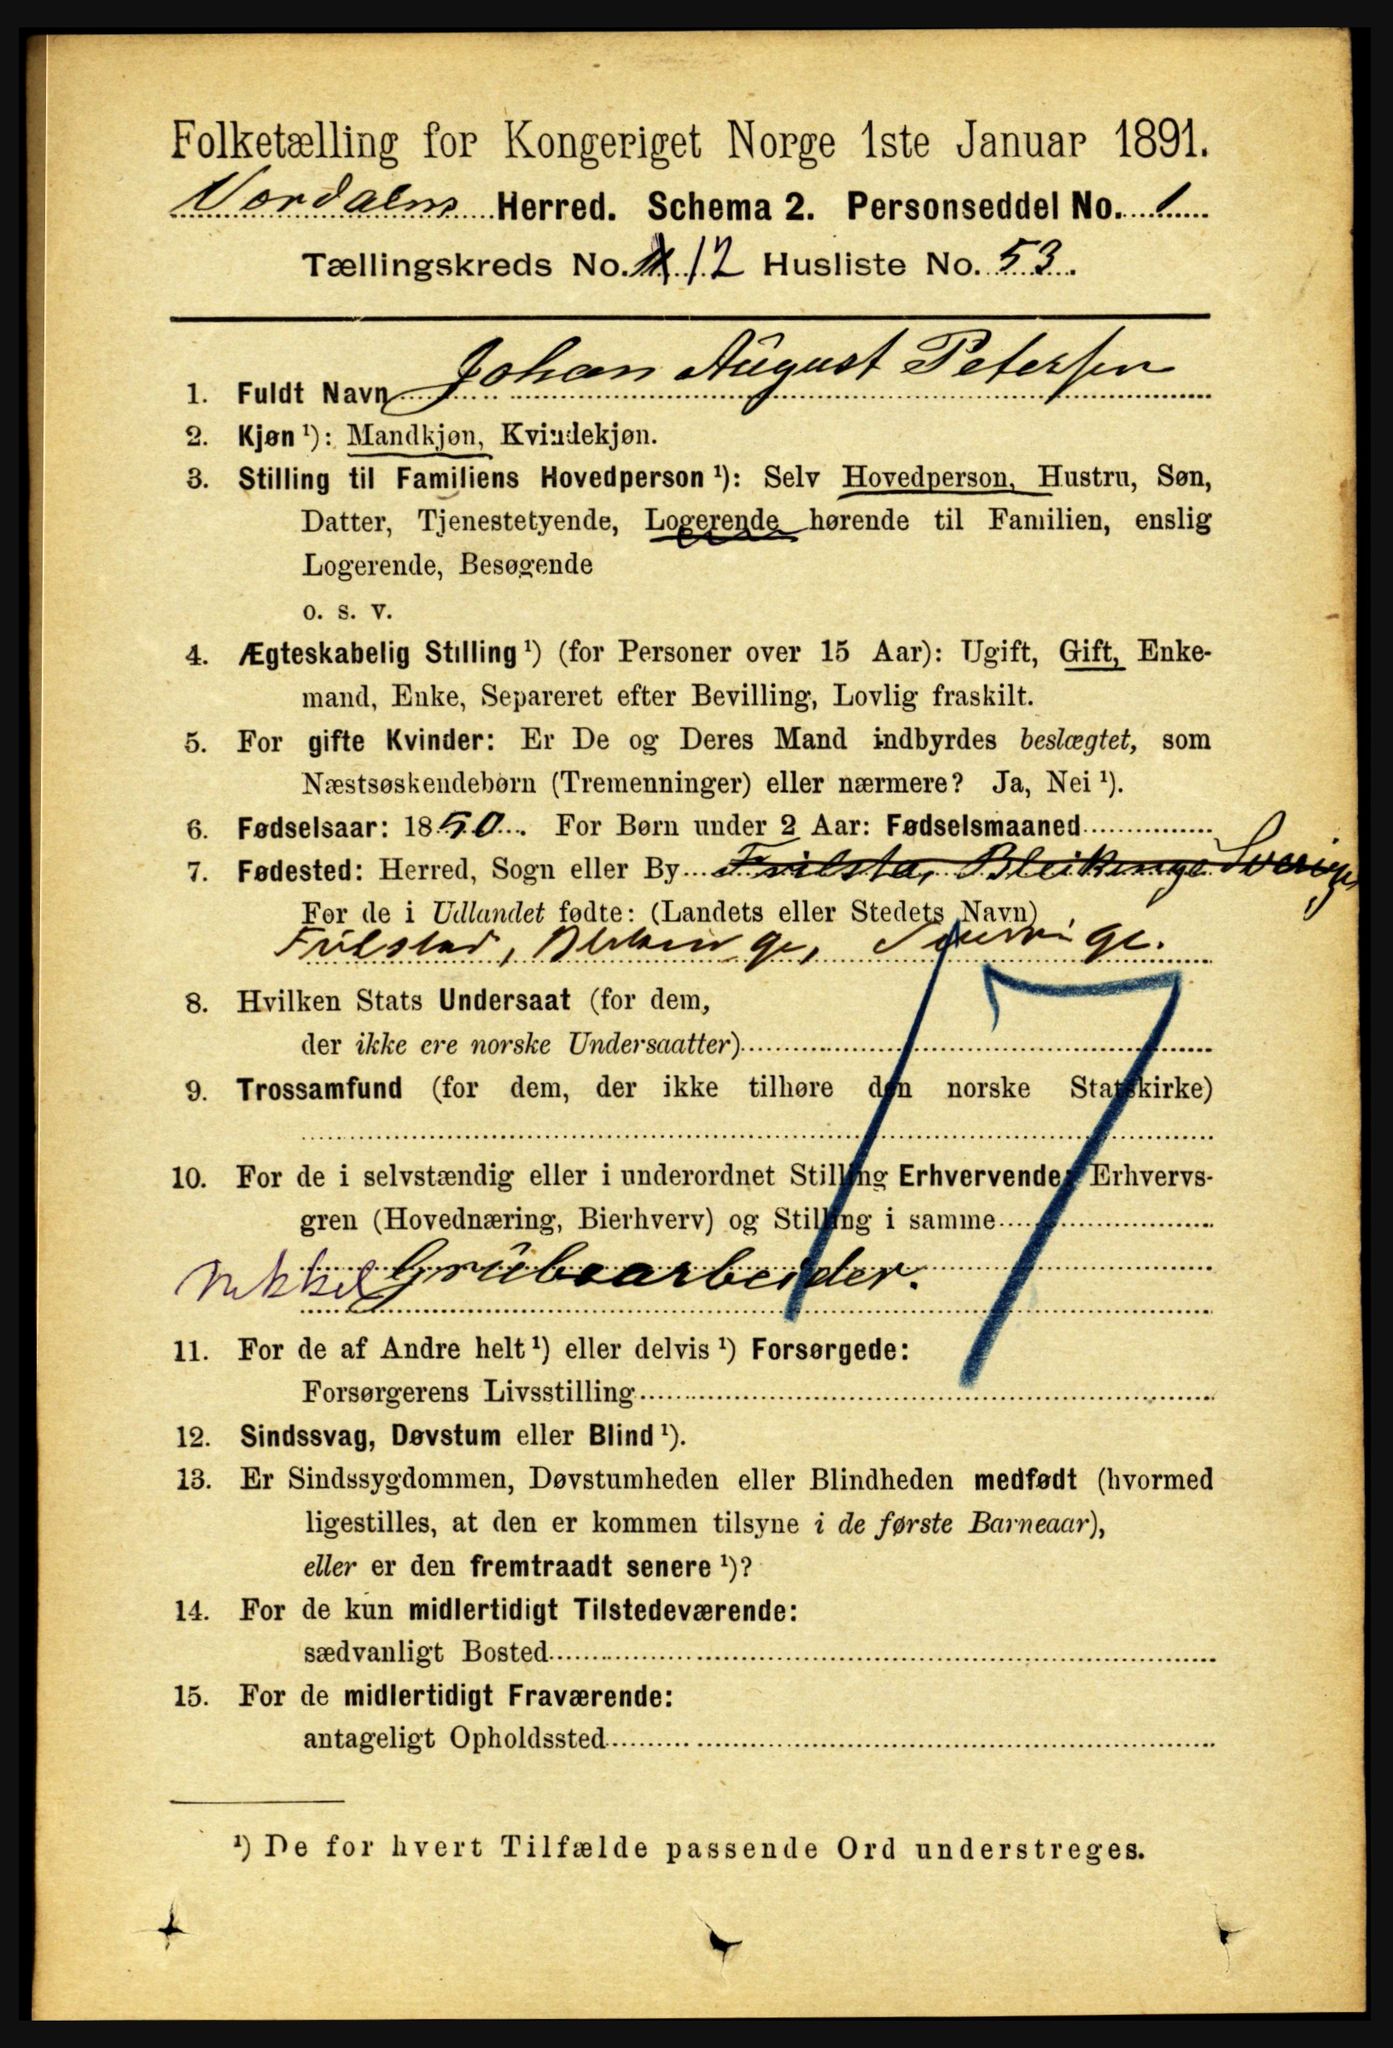 Folketælling for Kongeriget Norge 1ste Januar 1891.
Herred. Schema 2. Personseddel No. 1
Tællingskreds No. 12 Husliste No. 53.
1. Fuldt Navn Johan August Petersen
2. Kjøn ¹): Mandkjøn, Kvindekjøn.
3. Stilling til Familiens Hovedperson ¹): Selv Hovedperson, Hustru, Søn,
Datter, Tjenestetyende, Logerende hørende til Familien, enslig
Logerende, Besøgende
o. s. v.
4. Ægteskabelig Stilling ¹) (for Personer over 15 Aar): Ugift, Gift, Enke-
mand, Enke, Separeret efter Bevilling, Lovlig fraskilt.
5. For gifte Kvinder: Er De og Deres Mand indbyrdes beslægtet, som
Næstsøskendebørn (Tremenninger) eller nærmere? Ja, Nei ¹).
6. Fødselsaar: 1850. For Børn under 2 Aar: Fødselsmaaned
7. Fødested: Herred, Sogn eller By Frilsta, Bleikinge Sverige
For de i Udlandet fødte: (Landets eller Stedets Navn)
Sverrige.
8. Hvilken Stats Undersaat (for dem,
der ikke ere norske Undersaatter)
9. Trossamfund (for dem, der ikke tilhøre den norske Statskirke)
10. For de i selvstændig eller i underordnet Stilling Erhvervende: Erhvervs-
gren (Hovednæring, Bierhverv) og Stilling i samme
Nikkel Grubearbeider.
17
11. For de af Andre helt ¹) eller delvis ¹) Forsørgede:
Forsørgerens Livsstilling
12. Sindssvag, Døvstum eller Blind ¹).
13. Er Sindssygdommen, Døvstumheden eller Blindheden medfødt (hvormed
ligestilles, at den er kommen tilsyne i de første Barneaar),
eller er den fremtraadt senere ¹)?
14. For de kun midlertidigt Tilstedeværende:
sædvanligt Bosted
15. For de midlertidigt Fraværende:
antageligt Opholdssted
¹) De for hvert Tilfælde passende Ord understreges.